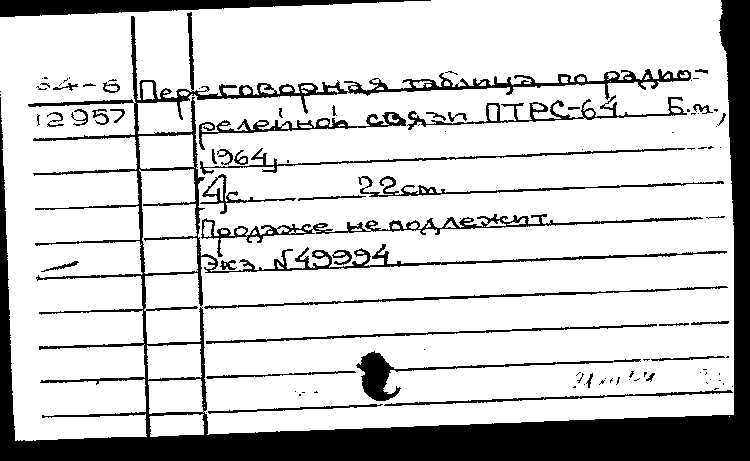 64-6 Переговорная таблица по радио-
12957 релейной связи ПТРС-64. Б.м.,
[1964].
[4]с. 22см.
Продаже не подлежит.
Экз. №49994.